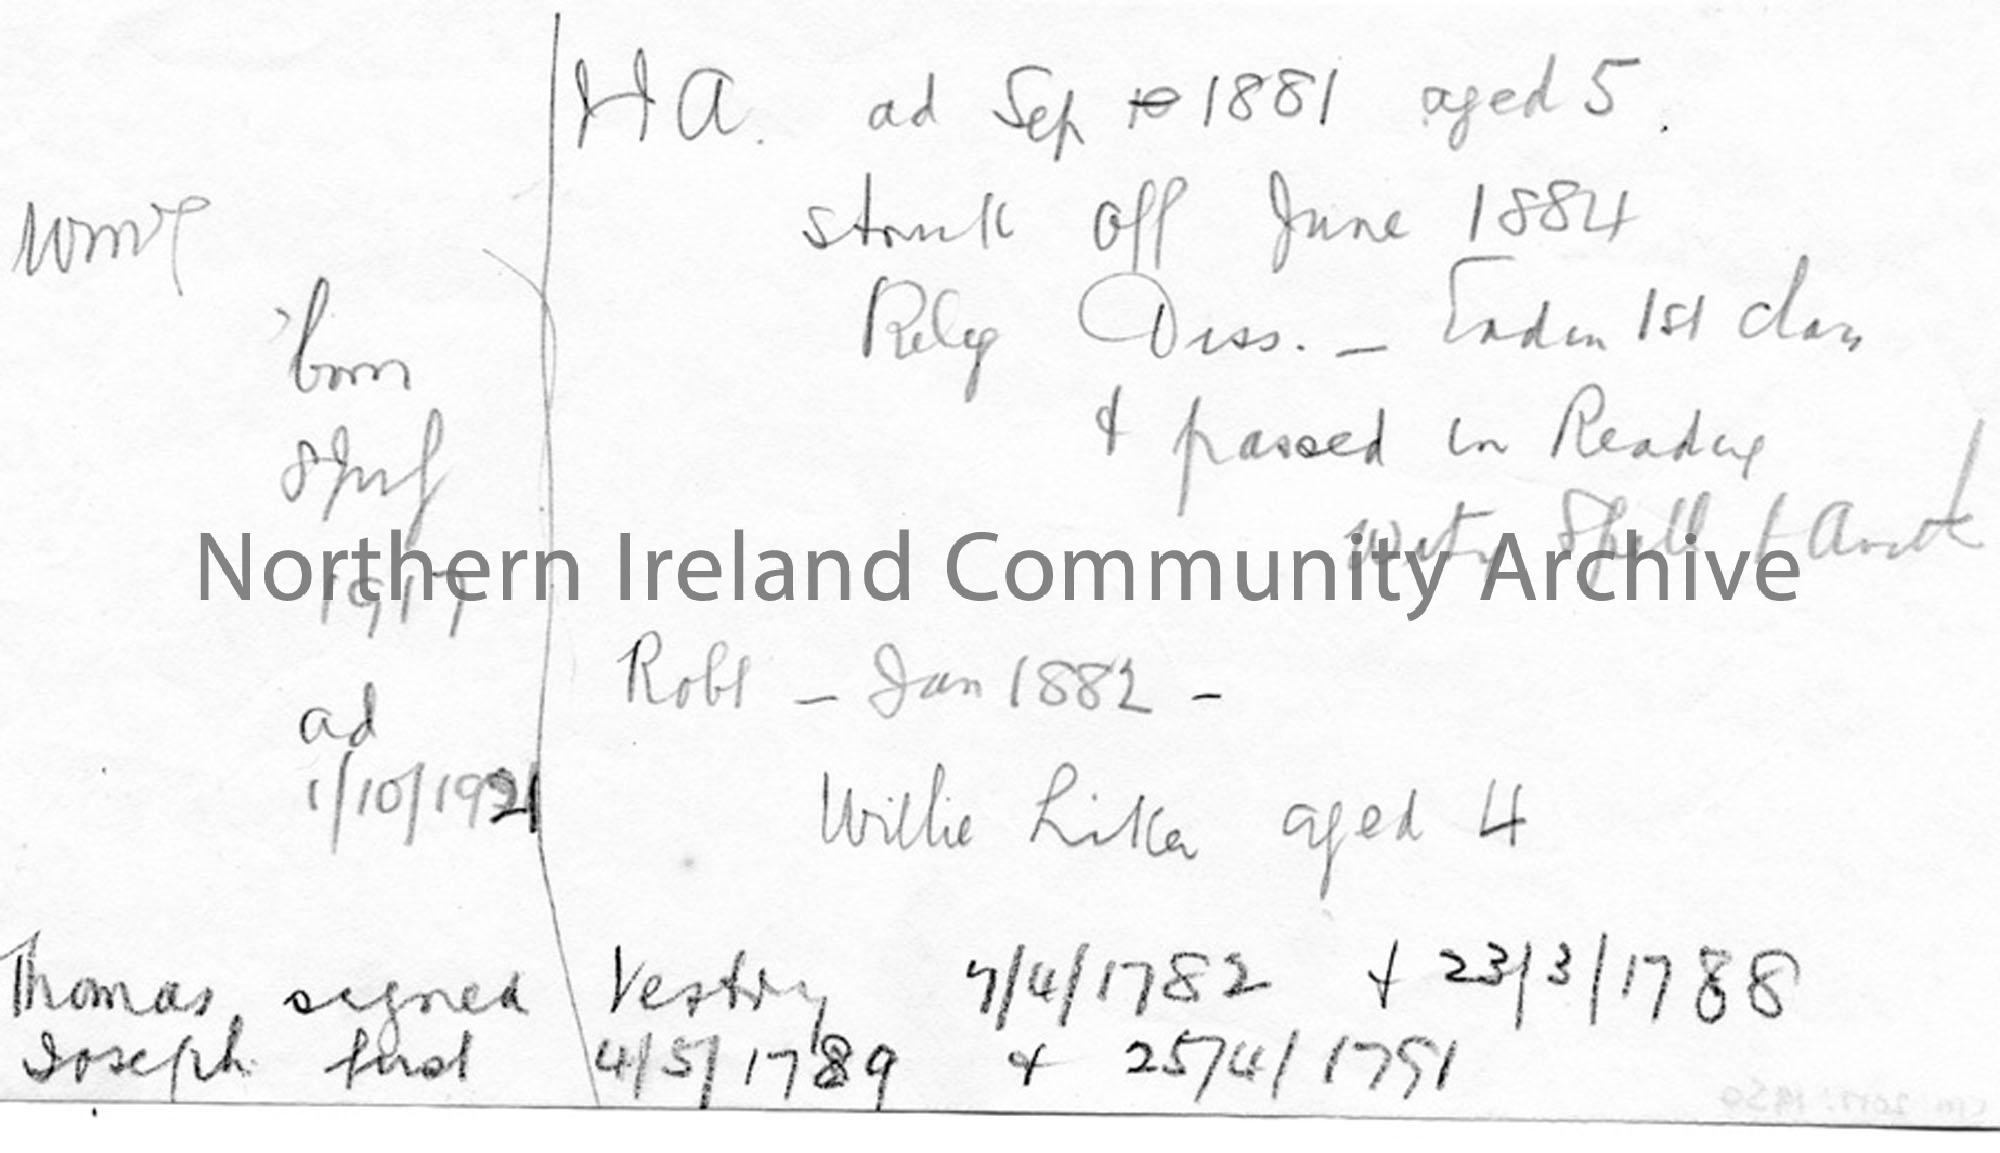 HA. ad Sep 1881 aged 5.
struck off June 1884
Relig Diss. — 1st class
& passed in Reading
Spell & Arith
born
Northern Ireland Community Archive
1917
ad
1/10/1921
Robt — Jan 1882 —
Willie aged 4
Thomas signed Vestry 7/4/1782 + 23/3/1788
Joseph first 4/5/1789 + 25/4/1791